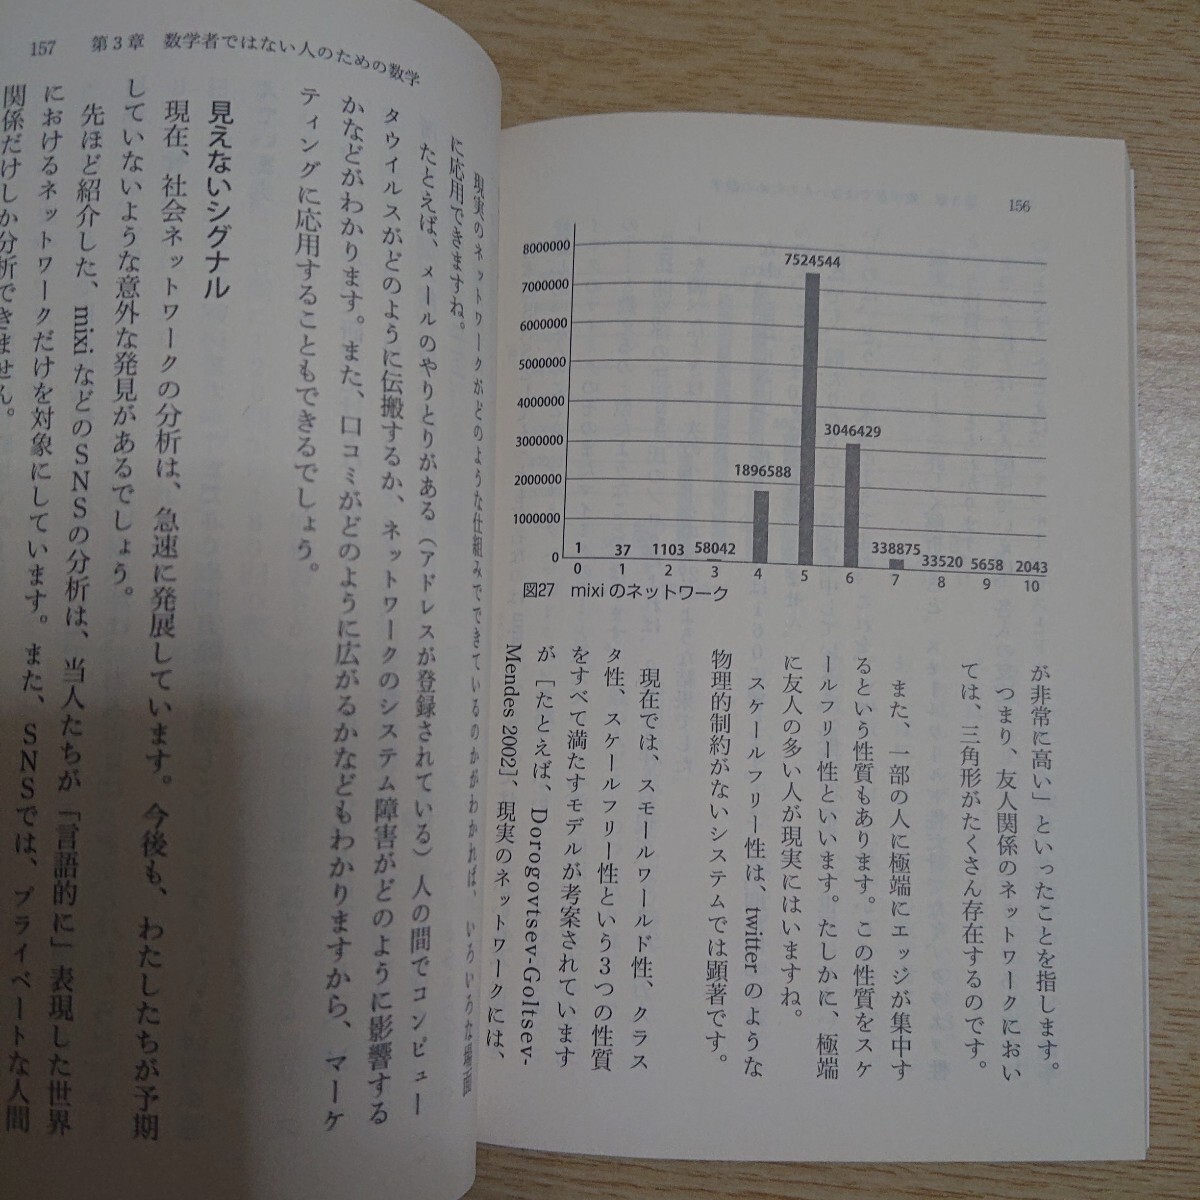 156
8000000
7000000
6000000
5000000
4000000
3000000
2000000
1000000
0
1
37
1103
58042
1896588
7524544
3046429
338875
33520
5658
2043
0 1 2 3 4 5 6 7 8 9 10
図27 mixi のネットワーク
が非常に高い」といったことを指します。
つまり、友人関係のネットワークにおい
ては、三角形がたくさん存在するのです。
また、一部の人に極端にエッジが集中す
るという性質もあります。この性質をスケ
ールフリー性といいます。たしかに、極端
に友人の多い人が現実にはいますね。
スケールフリー性は、twitter のような
物理的制約がないシステムでは顕著です。
現在では、スモールワールド性、クラス
タ性、スケールフリー性という3つの性質
をすべて満たすモデルが考案されています
が［たとえば、Dorogovtsev-Goltsev-
Mendes 2002］、現実のネットワークには、
157 第3章 数学者ではない人のための数学
現実のネットワークがどのような仕組みでできているのかがわかれば、いろいろな場面
に応用できますね。
たとえば、メールのやりとりがある（アドレスが登録されている）人の間でコンピュー
タウイルスがどのように伝搬するか、ネットワークのシステム障害がどのように影響する
かなどがわかります。また、口コミがどのように広がるかなどもわかりますから、マーケ
ティングに応用することもできるでしょう。
見えないシグナル
現在、社会ネットワークの分析は、急速に発展しています。今後も、わたしたちが予期
していないような意外な発見があるでしょう。
先ほど紹介した、mixi などのSNSの分析は、当人たちが「言語的に」表現した世界
におけるネットワークだけを対象にしています。また、SNSでは、プライベートな人間
関係だけしか分析できません。